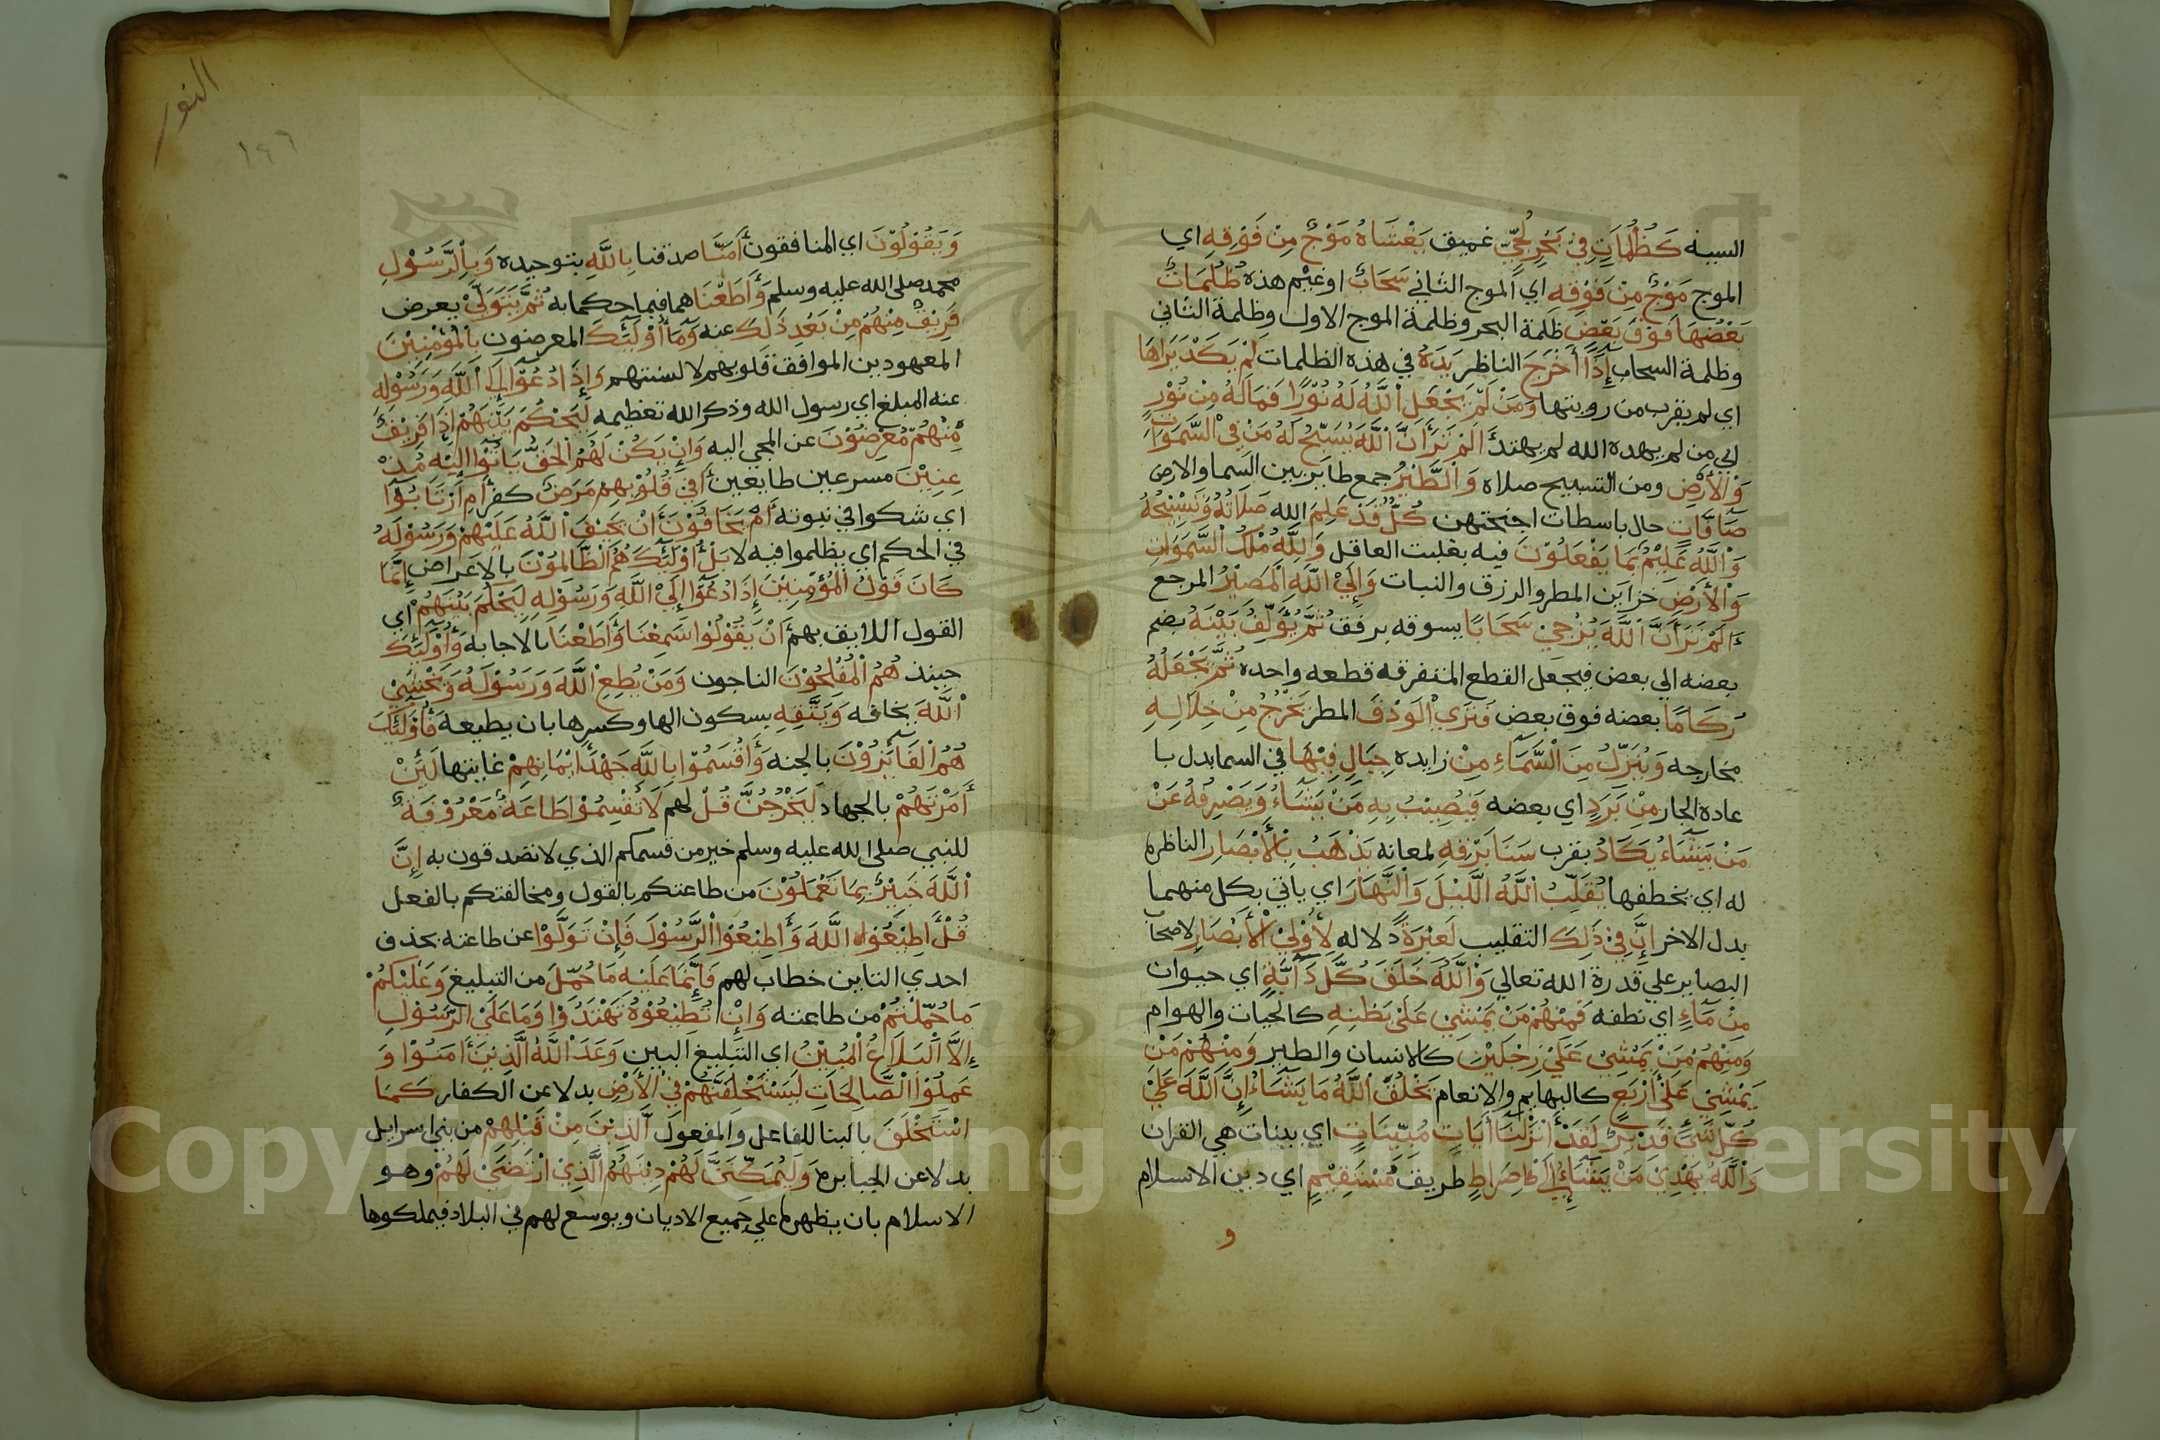 السيئه كَظُلُمَاتٍ فِي بَحْرٍ لُجِّيٍّ عميق يَغْشَاهُ مَوْجٌ مِنْ فَوْقِهِ اي
الموج مَوْجٌ مِنْ فَوْقِهِ اي الموج الثاني سَحَابٌ اي غيم هذه ظُلُمَاتٌ
بَعْضُهَا فَوْقَ بَعْضٍ ظلمة البحر وظلمة الموج الاول وظلمة الثاني
وظلمة السحاب إِذَا أَخْرَجَ الناظر يَدَهُ في هذه الظلمات لَمْ يَكَدْ يَرَاهَا
اي لم يقرب من رويتها وَمَنْ لَمْ يَجْعَلِ اللَّهُ لَهُ نُوْرًا فَمَا لَهُ مِنْ نُوْرٍ
اي من لم يهده الله لم يهتد أَلَمْ تَرَ أَنَّ اللَّهَ يُسَبِّحُ لَهُ مَنْ فِي السَّمَوَاتِ
وَالْأَرْضِ ومن التسبيح صلاه وَالطَّيْرُ جمع طاير بين السما والارض
صَافَّاتٍ حال باسطات اجنحتهن كُلٌّ قَدْ عَلِمَ الله صَلَاتَهُ وَتَسْبِيْحَهُ
وَاللَّهُ عَلِيْمٌ بِمَا يَفْعَلُوْنَ فيه بغلبت العاقل وَلِلَّهِ مُلْكُ السَّمَوَاتِ
وَالْأَرْضِ خزاين المطر والرزق والنبات وَإِلَيْ اللَّهِ الْمَصِيْرُ المرجع
أَلَمْ تَرَ أَنَّ اللَّهَ يُزْجِيْ سَحَابًا يسوقه برفق ثُمَّ يُؤَلِّفُ بَيْنَهُ يضم
بعضه الي بعض فيجعل القطع المتفرقه قطعه واحده ثُمَّ يَجْعَلُهُ
رُكَامًا بعضه فوق بعض فَتَرَي الْوَدْقَ المطر يَخْرُجُ مِنْ خِلَالِهِ
مخارجه وَيُنَزِّلُ مِنَ السَّمَاءِ مِنْ زايده جِبَالٍ فِيْهَا في السما بدل با
عاده الجار مِنْ بَرَدٍ اي بعضه فَيُصِيْبُ بِهِ مَنْ يَشَاءُ وَيَصْرِفُهُ عَنْ
مَنْ يَشَاءُ يَكَادُ يقرب سَنَا بَرْقِهِ لمعانه يَذْهَبُ بِالْأَبْصَارِ الناظره
له اي يخطفها يُقَلِّبُ اللَّهُ اللَّيْلَ وَالنَّهَارَ اي ياتي بكل منهما
بدل الاخر إِنَّ فِيْ ذَلِكَ التقليب لَعِبْرَةً دلاله لِأُوْلِيْ الْأَبْصَارِ لاصحا
البصاير علي قدرة الله تعالي وَاللَّهُ خَلَقَ كُلَّ دَابَّةٍ اي حيوان
مِنْ مَاءٍ اي نطفه فَمِنْهُمْ مَنْ يَمْشِيْ عَلَيْ بَطْنِهِ كالحيات والهوام
وَمِنْهُمْ مَنْ يَمْشِيْ عَلَيْ رِجْلَيْنِ كالانسان والطير وَمِنْهُمْ مَنْ
يَمْشِيْ عَلَيْ أَرْبَعٍ كالبهايم والانعام يَخْلُقُ اللَّهُ مَا يَشَاءُ إِنَّ اللَّهَ عَلَيْ
كُلِّ شَيْءٍ قَدِيْرٌ لَقَدْ أَنْزَلْنَا أَيَاتٍ مُبَيِّنَاتٍ اي بينات هي القران
وَاللَّهُ يَهْدِيْ مَنْ يَشَاءُ إِلَيْ صِرَاطٍ طريق مُسْتَقِيْمٍ اي دين الاسلام
و
النور
١٤٦
وَيَقُوْلُوْنَ اي المنافقون أَمَنَّا صدقنا بِاللَّهِ بتوحيده وَبِالرَّسُوْلِ
محمد صلي الله عليه وسلم وَأَطَعْنَا هما فيما حكما به ثُمَّ يَتَوَلَّيْ يعرض
فَرِيْقٌ مِنْهُمْ مِنْ بَعْدِ ذَلِكَ عنه وَمَا أُوْلَئِكَ المعرضون بِالْمُؤْمِنِيْنَ
المعهودين الموافق قلوبهم لالسنتهم وَإِذَا دُعُوْا إِلَيْ اللَّهِ وَرَسُوْلِهِ
عنه المبلغ اي رسول الله وذكر الله تعظيمه لِيَحْكُمَ بَيْنَهُمْ إِذَا فَرِيْقٌ
مِنْهُمْ مُعْرِضُوْنَ عن المجي اليه وَإِنْ يَكُنْ لَهُمُ الْحَقُّ يَاتُوْا إِلَيْهِ مُذْ
عِنِيْنَ مسرعين طايعين أَفِيْ قُلُوْبِهِمْ مَرَضٌ كفر أَمِ ارْتَابُوْا
اي شكوا في نبوته أَمْ يَخَافُوْنَ أَنْ يَحِيْفَ اللَّهُ عَلَيْهِمْ وَرَسُوْلُهُ
في الحكم اي يظلموا فيه لا بَلْ أُوْلَئِكَ هُمُ الظَّالِمُوْنَ بالاعراض إِنَّمَا
كَانَ قَوْلَ الْمُؤْمِنِيْنَ إِذَا دُعُوْا إِلَيْ اللَّهِ وَرَسُوْلِهِ لِيَحْكُمَ بَيْنَهُمْ اي
القول اللايق بهم أَنْ يَقُوْلُوْا سَمِعْنَا وَأَطَعْنَا بالاجابه وَأُوْلَئِكَ
حينيذ هُمُ الْمُفْلِحُوْنَ الناجون وَمَنْ يُطِعِ اللَّهَ وَرَسُوْلَهُ وَيَخْشَيْ
اللَّهَ يخافه وَيَتَّقِهِ بسكون الها وكسرها بان يطيعه فَأُوْلَئِكَ
هُمُ الْفَايِزُوْنَ بالجنه وَأَقْسَمُوْا بِاللَّهِ جَهْدَ أَيْمَانِهِمْ غايتها لَئِنْ
أَمَرْتَهُمْ بالجهاد لَيَخْرُجُنَّ قُلْ لهم لَا تُقْسِمُوْا طَاعَةٌ مَعْرُوْفَةٌ
للنبي صلي الله عليه وسلم خير من قسمكم الذي لا تصدقون به إِنَّ
اللَّهَ خَبِيْرٌ بِمَا تَعْمَلُوْنَ من طاعتكم بالقول ومخالفتكم بالفعل
قُلْ أَطِيْعُوْا اللَّهَ وَأَطِيْعُوْا الرَّسُوْلَ فَإِنْ تَوَلَّوْا عن طاعته بحذف
احدي التاين خطاب لهم فَإِنَّمَا عَلَيْهِ مَا حُمِّلَ من التبليغ وَعَلَيْكُمْ
مَا حُمِّلْتُمْ من طاعته وَإِنْ تُطِيْعُوْهُ تَهْتَدُوْا وَمَا عَلَيْ الرَّسُوْلِ
إِلَّا الْبَلَاغُ الْمُبِيْنُ اي التبليغ البين وَعَدَ اللَّهُ الَّذِيْنَ أَمَنُوْا وَ
عَمِلُوْا الصَّالِحَاتِ لَيَسْتَخْلِفَنَّهُمْ فِيْ الْأَرْضِ بدلا عن الكفار كَمَا
اسْتَخْلَفَ بالبنا للفاعل والمفعول الَّذِيْنَ مِنْ قَبْلِهِمْ من بني اسرايل
بدلا عن الجبابره وَلَيُمَكِّنَنَّ لَهُمْ دِيْنَهُمُ الَّذِيْ ارْتَضَيْ لَهُمْ وهو
الاسلام بان يظهره علي جميع الاديان ويوسع لهم في البلاد فيملكوها
Copyright © King Saud University